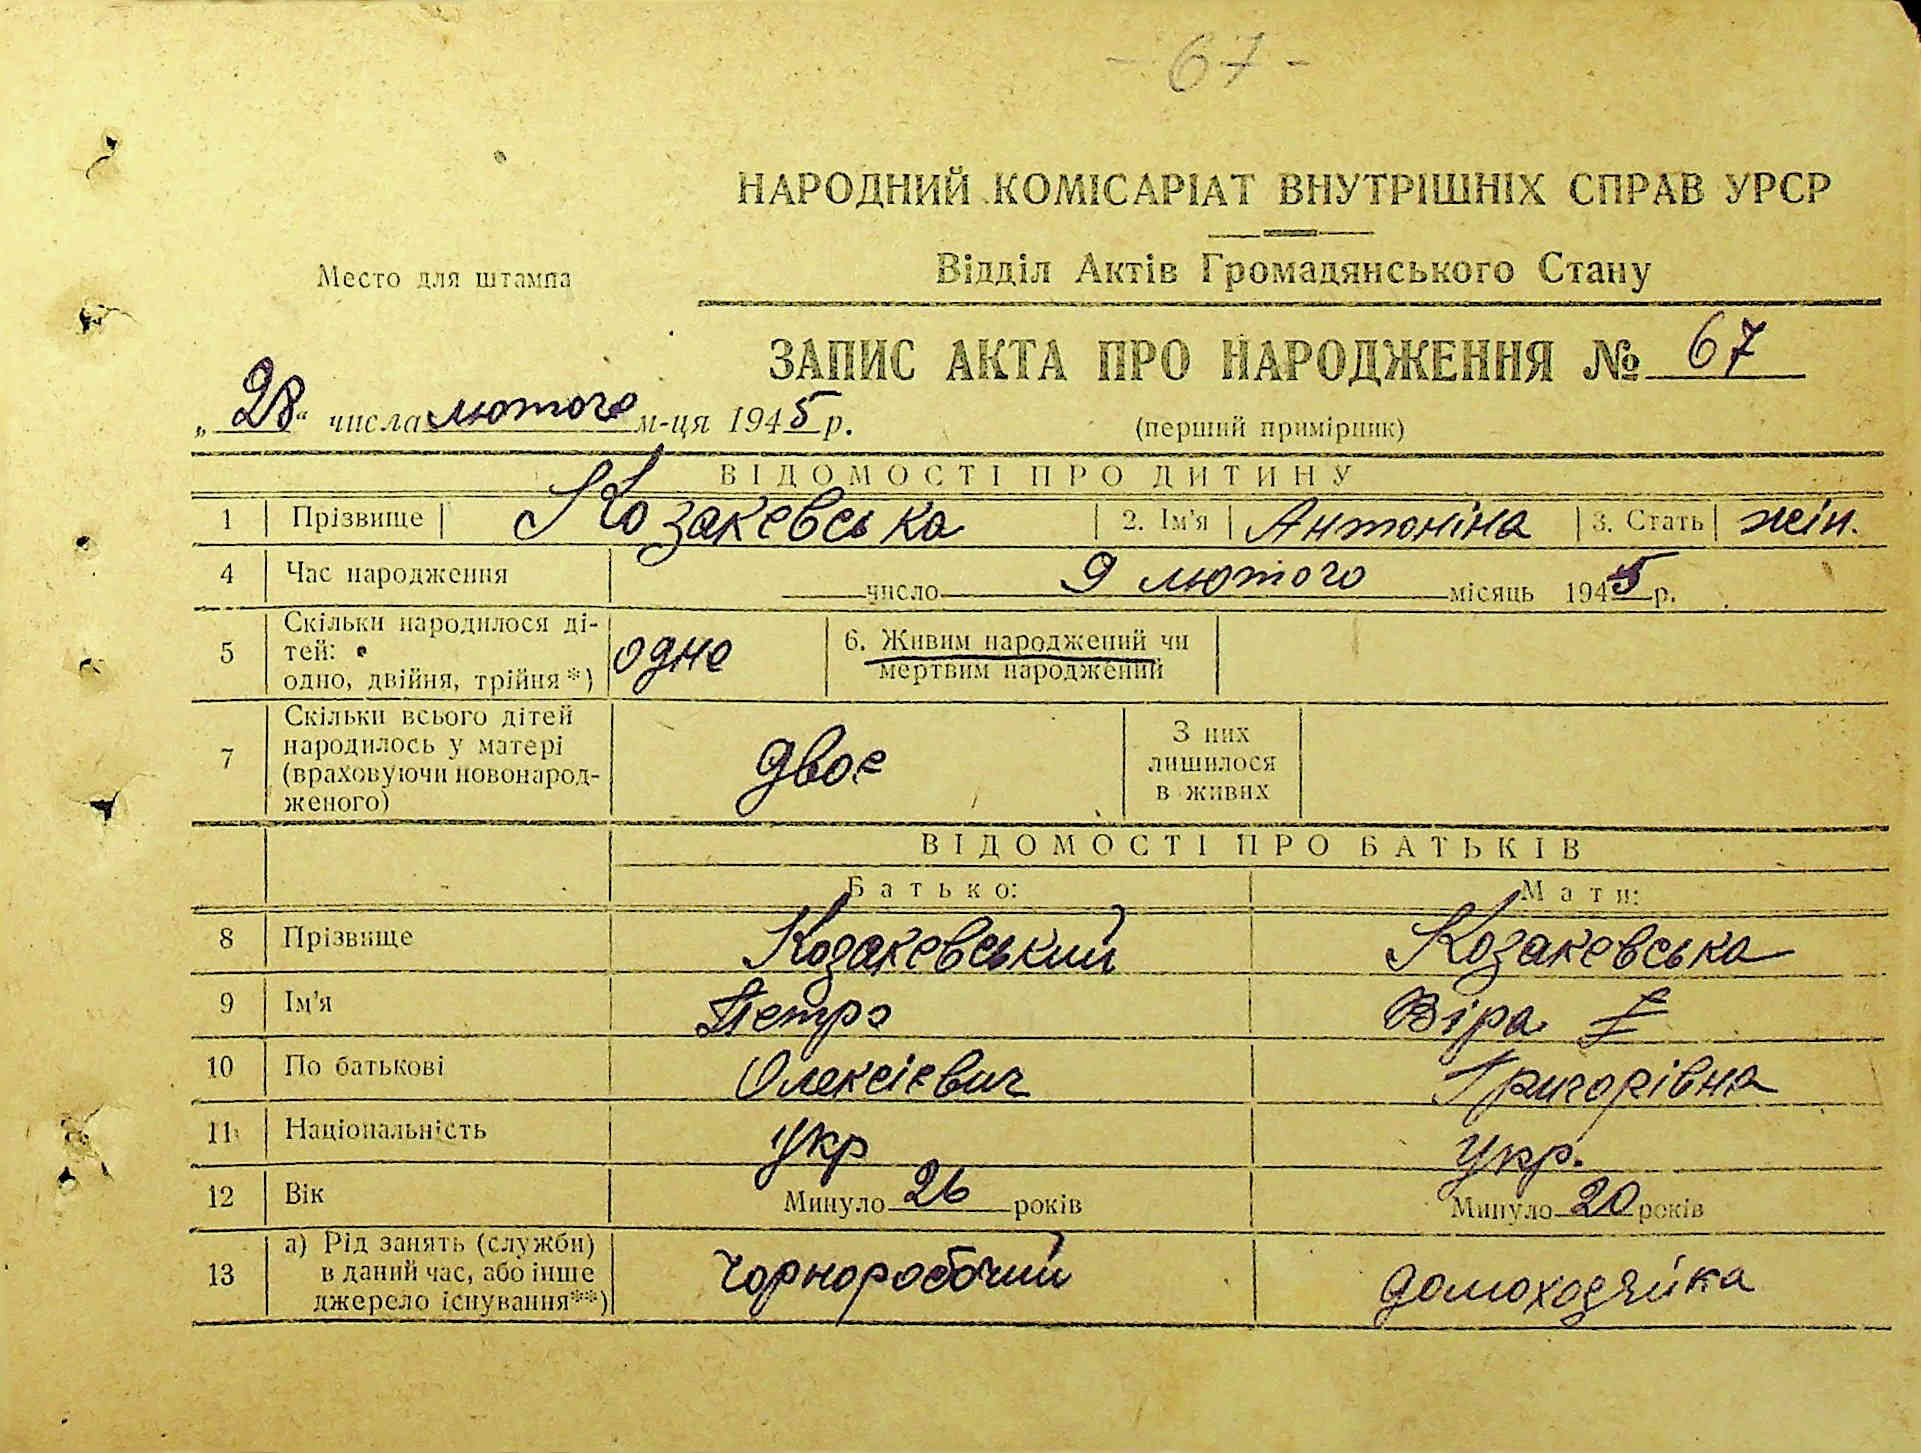 - 67 -
НАРОДНИЙ КОМІСАРІАТ ВНУТРІШНІХ СПРАВ УРСР
Место для штампа
Відділ Актів Громадянського Стану
ЗАПИС АКТА ПРО НАРОДЖЕННЯ № 67
„28“ числа лютого м-ця 1945 р.
(перший примірник)
ВІДОМОСТІ ПРО ДИТИНУ
1 Прізвище Козакевська 2. Ім'я Антоніна 3. Стать жін.
4 Час народження число 9 лютого місяць 1945 р.
5 Скільки народилося ді-
тей:
одно, двійня, трійня*) одне 6. Живим народжений чи
мертвим народжений
7 Скільки всього дітей
народилось у матері
(враховуючи новонарод-
женого) двоє З них
лишилося
в живих
ВІДОМОСТІ ПРО БАТЬКІВ
Батько: Мати:
8 Прізвище Козакевський Козакевська
9 Ім'я Петро Віра
10 По батькові Олексієвич Григорівна
11 Національність укр укр.
12 Вік Минуло 26 років Минуло 20 років
13 а) Рід занять (служби)
в даний час, або інше
джерело існування**) Чорноробочий домоходяйка